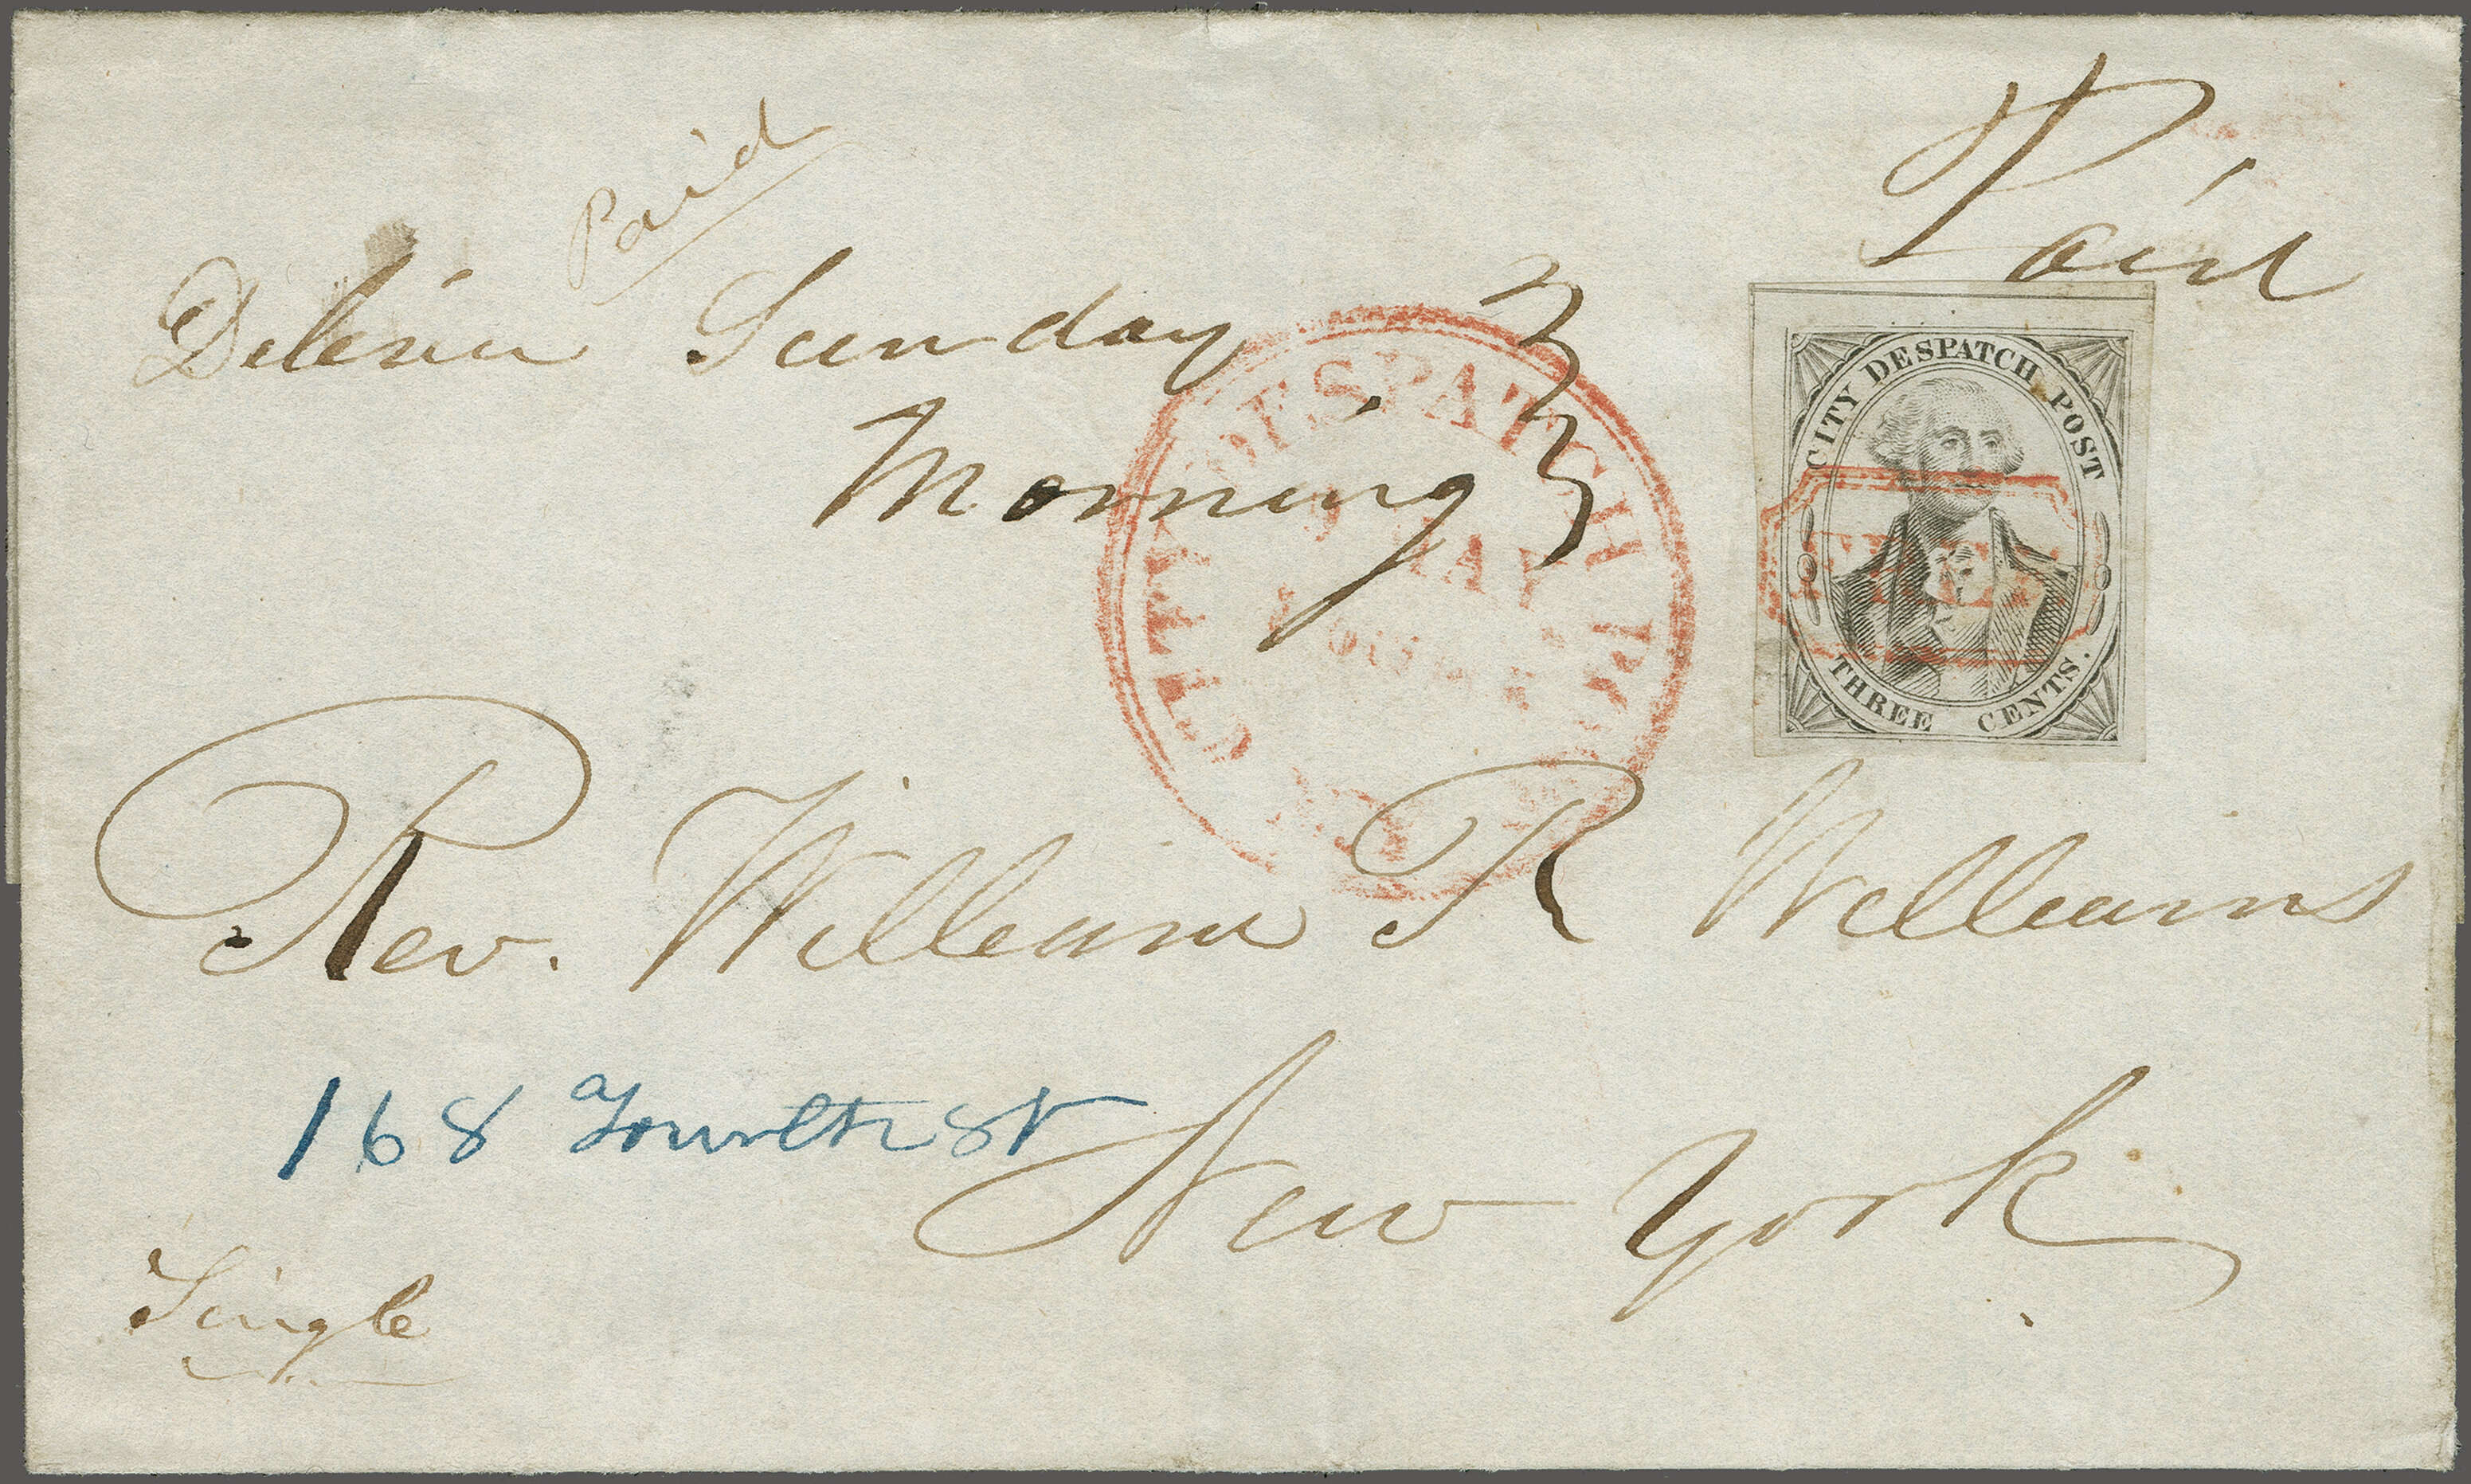 Paid
Paid
Deliver Sunday
Morning
CITY DESPATCH POST
9 MAY
N.Y.
CITY DESPATCH POST
FREE
THREE CENTS.
Rev. William R Williams
168 Fourth St
New York
Single